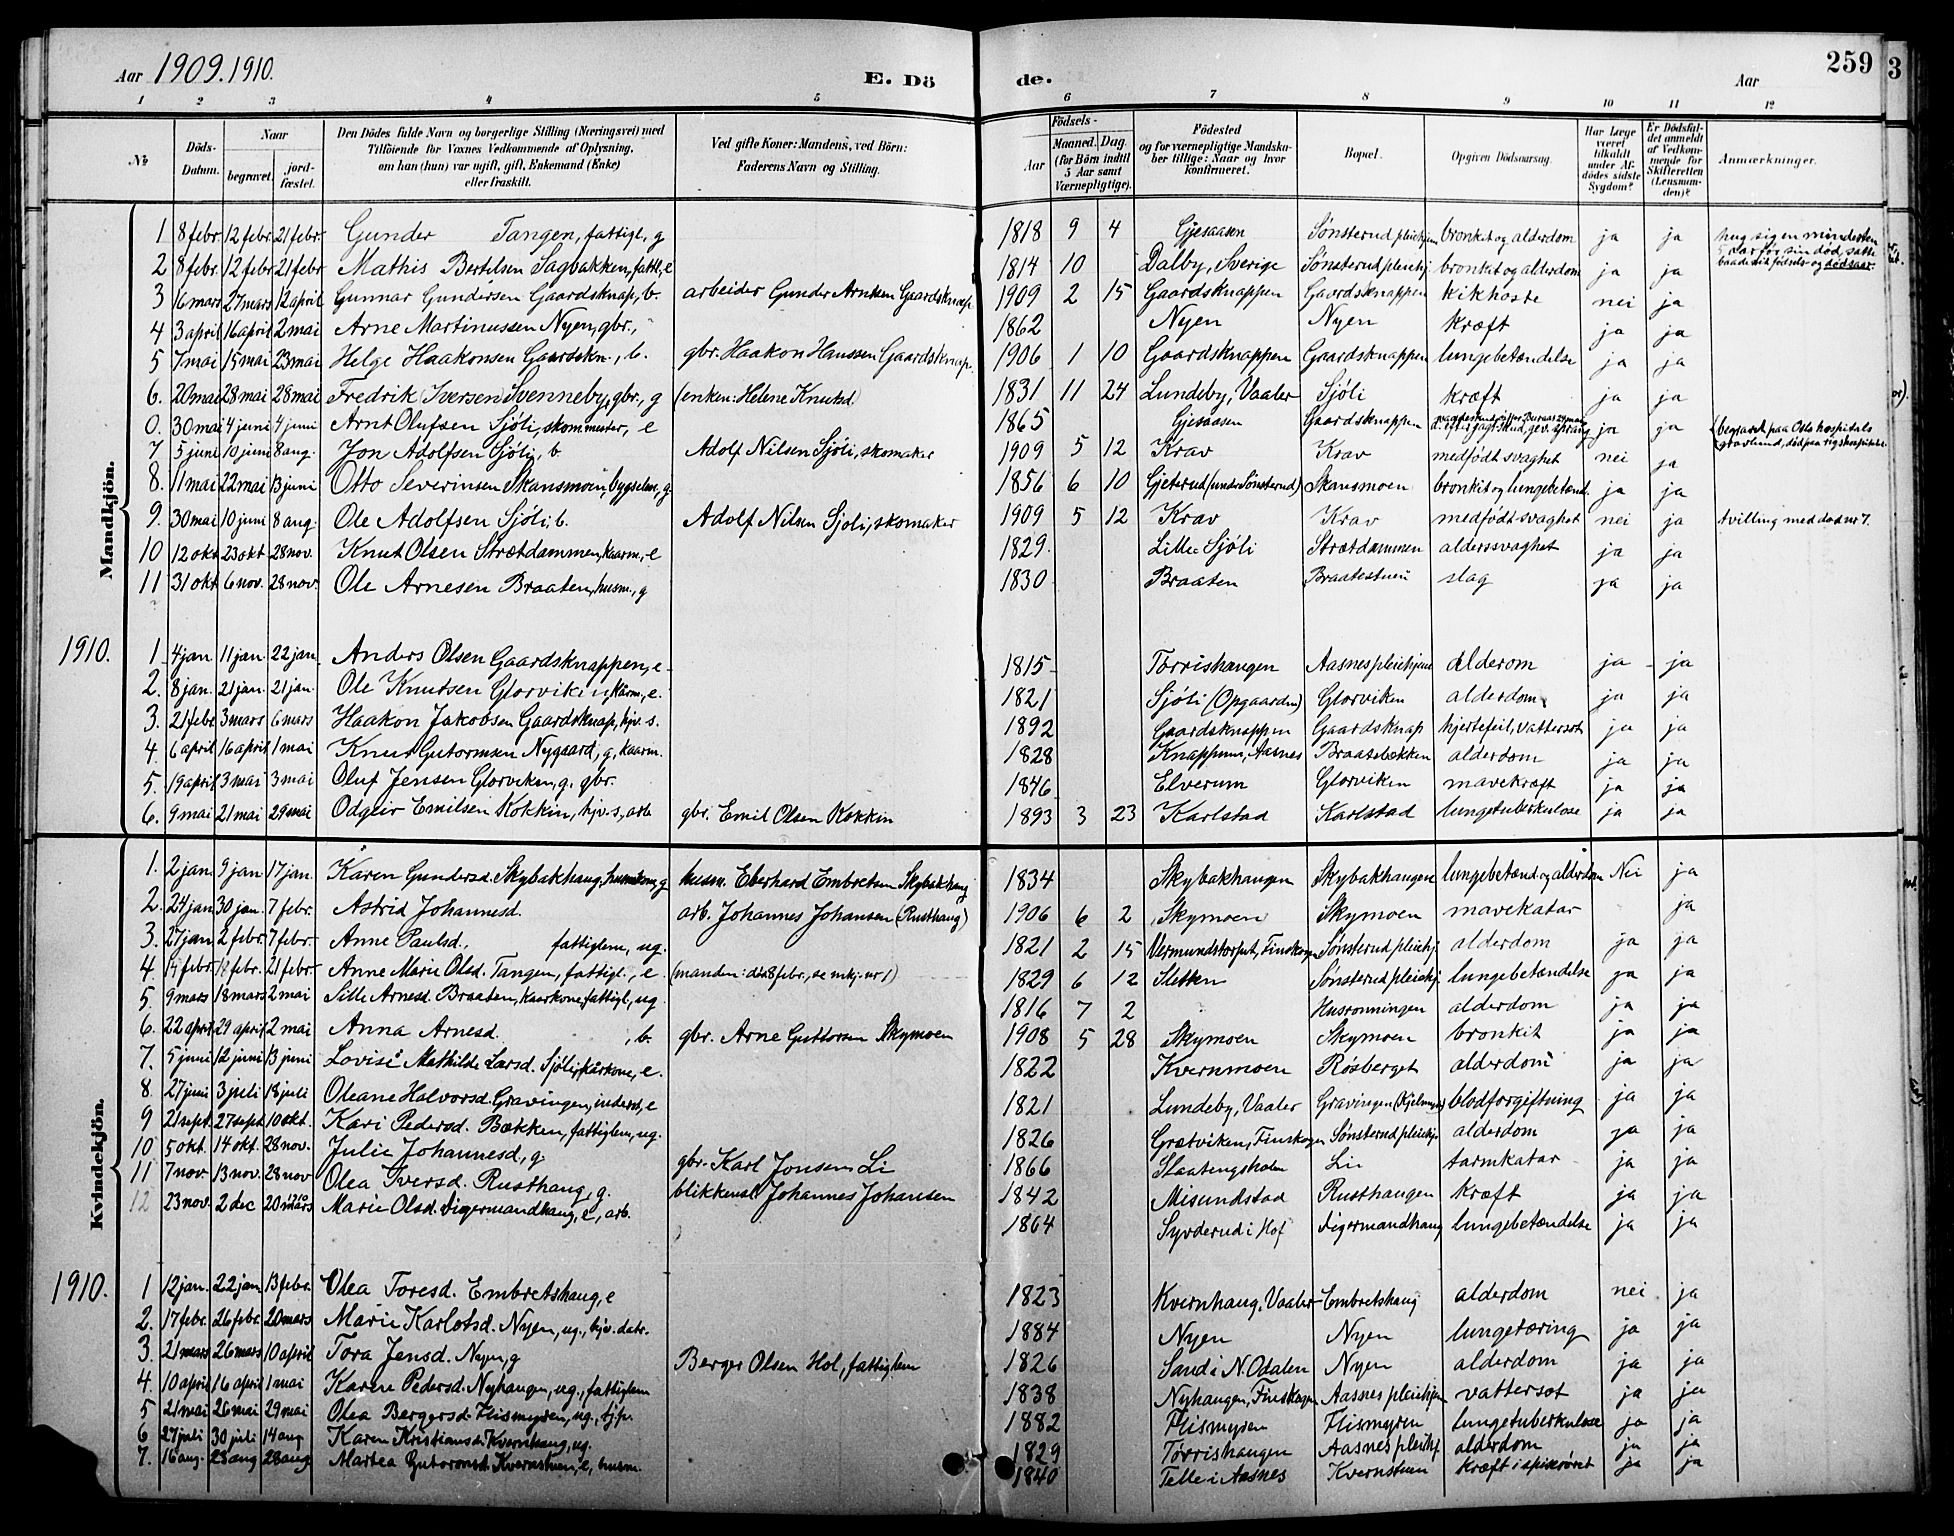 Aar 1909. 1910. E. Dö
de. Aar 259
3
1 2 3 4 5 6 7 8 9 10 11 12
№ Döds-Datum. Naar begravet. jordfæstet. Den Dödes fulde Navn og borgerlige Stilling (Næringsvei) med Tilföiende for Voxnes Vedkommende af Oplysning, om han (hun) var ugift, gift, Enkemand (Enke) eller fraskilt. Ved gifte Koner: Mandens, ved Börn: Faderens Navn og Stilling. Födsels- Aar Maaned. Dag. (for Börn indtil 5 Aar samt Værnepligtige). Födested og for værnepligtige Mandskaber tillige: Naar og hvor konfirmeret. Bopæl. Opgiven Dödsaarsag. Har Læge været tilkaldt under Afdödes sidste Sygdom? Er Dödsfaldet anmeldt af Vedkommende for Skifteretten (Lensmanden)? Anmærkninger.
Mandkjön.
1 8 febr. 12 febr. 21 febr. Gunder Tangen, fattigl, g 1818 9 4 Gjesaasen Sønsterud pleiehjem bronkit og alderdom ja ja
2 8 febr. 12 febr. 21 febr. Mathis Bertilsen Sagbakken, fattl, e 1814 10 Dalby, Sverige Sønsterud pleiehj bronkit og alderdom ja ja
3 6 mars 27 mars 12 april Gunnar Gundersen Gaardsknap, b. arbeider Gunder Arntsen Gaardsknap 1909 2 15 Gaardsknappen Gaardsknappen kikhoste nei ja
4 3 april 16 april 2 mai Arne Martinussen Nyen, gbr., 1862 Nyen Nyen kræft ja ja
5 7 mai 15 mai 23 mai Helge Haakonsen Gaardskn., b. gbr. Haakon Hanssen Gaardsknap. 1906 1 10 Gaardsknappen Gaardsknappen lungebetændelse ja ja
6. 20 mai 28 mai 28 mai Fredrik Iversen Svenneby, gbr., g (enken: Helene Knutsd) 1831 11 24 Lundeby, Vaaler Sjöli kræft ja ja
0. 30 mai 4 juni 4 juni Arnt Olufsen Sjöli, skommester, e 1865 Gjesaasen Gaardsknappen ja ja (begravet paa Oslo hospitals gravlund, död paa rigshospitalet
7 5 juni 10 juni 8 aug. Jon Adolfsen Sjöli, b Adolf Nilsen Sjöli, skomaker 1909 5 12 Krav Krav medfödt svaghet nei ja
8. 11 mai 22 mai 13 juni Otto Severinsen Skansmoen, bygselm, g. 1856 6 10 Gjeterud (under Sönsterud) Skansmoen bronkit og lungebetænd. ja ja
9. 30 mai 10 juni 8 aug. Ole Adolfsen Sjöli, b. Adolf Nilsen Sjöli, skomaker 1909 5 12 Krav Krav medfödt svaghet nei ja tvilling med död nr 7.
10 12 okt 23 okt 28 nov. Knut Olsen Strætdammen, kaarm, e 1829. Lille Sjöli Strætdammen alderssvaghet ja ja
11 31 okt 6 nov. 28 nov. Ole Arnesen Braaten, husm., g 1830 Braaten Braatestuen slag ja ja
1910.
1 4 jan. 11 jan. 22 jan. Anders Olsen Gaardsknappen, e 1815 Törrishaugen Aasnes pleiehjem alderom ja ja
2. 8 jan. 21 jan. 21 jan. Ole Knutsen Glorviken, kårm., e. 1821 Sjöli (Opgaarden) Glorviken alderdom. ja ja
3. 21 febr 3 mars 6 mars Haakon Jakobsen Gaardsknap, hjv. s. 1892 Gaardsknappen Gaardsknap hjertefeil, vattersot ja ja
4. 6 april 16 april 1 mai Knut Gutormsen Nygaard, g, kaarm. 1828 Knappum, Aasnes Braatebækken alderdom ja ja
5. 19 april 3 mai 3 mai Oluf Jensen Glorviken, g, gbr. 1846 Elverum Glorviken mavekræft ja ja
6. 9 mai 21 mai 29 mai Odgeir Emilsen Kokkin, hjv. s., arb gbr. Emil Olsen Kokkin 1893 3 23 Karlstad Karlstad lungetuberkulose ja ja
Kvindekjön.
1. 2 jan. 9 jan 17 jan. Karen Gundersd. Skybakhaug, husmkone, g husm. Eberhard Embretsen Skybakhaug 1834 Skybakhaugen Skybakhaugen lungebetænd. og alderdom Nei ja
2. 24 jan 30 jan. 7 febr. Astrid Johannesd. arb. Johannes Johansen (Rusthaug) 1906 6 2 Skymoen Skymoen mavekatar ja
3. 27 jan 2 febr. 7 febr. Anne Paulsd., fattiglem, ug. 1821 2 15 Vermundstorpet, Finskogen Sønsterud pleiehj. alderdom ja ja
4. 14 febr. 19 febr. 21 febr. Anne Marie Olsd. Tangen, fattigl., e (manden: död 8 febr., se mkj. nr 1) 1829 6 12 Sletten Sønsterud pleiehj. lungebetændelse ja ja
5. 9 mars 18 mars 2 mai Sille Arnesd. Braaten, kaarkone, fattigl, ug. 1816 7 2 Husrønningen alderdom ja ja
6. 22 april 29 april 2 mai Anna Arnesd. , b. gbr. Arne Guttormsen Skymoen 1908 5 28 Skymoen Skymoen bronkit ja ja
7. 5 juni 12 juni 13 juni Lovise Mathilde Larsd. Sjöli, kårkone, e. 1822 Kvernmoen Rösberget alderdom ja ja
8 27 juni 3 juli 18 juli Oleane Halvorsd. Gravingen, inderst, e 1821 Lundeby, Vaaler Gravingen (Kjelmyr) blodforgiftning ja ja
9 21 sept. 27 sept. 10 okt. Kari Pedersd. Bækken, fattiglem, ug. 1826 Grætviken, Finskogen Sønsterud pleiehj alderdom ja ja
10 5 okt. 14 okt. 28 nov. Julie Johannesd., g gbr. Karl Jonsen Li 1866 Slaatengsholen Lie tarmkatar ja ja
11 7 nov. 13 nov. 28 nov Olea Iversd. Rusthaug, g. blikkensl. Johannes Johansen 1842 Misundstad Rusthaugen kræft ja ja
12 23 nov. 2 dec 20 mars 1910 Marie Olsd. Digermandhaug, e, arb. 1864 Syverud i Hof Digermandhaug lungebetændelse ja ja
1910.
1 12 jan. 22 jan. 13 febr. Olea Toresd. Embretshaug, e 1823 Kvernhaug, Vaaler Embretshaug alderdom nei ja
2. 17 febr. 26 febr. 20 mars Marie Karlotsd. Nyen, ug., hjv. datr. 1884 Nyen Nyen lungetæring ja ja
3. 21 mars 26 mars 10 april Tora Jensd. Nyen, g Berger Olsen Hol, fattiglem 1826 Sand i N. Odalen Nyen alderdom ja ja
4. 10 april 16 april 1 mai Karen Pedersd. Nyhaugen, ug., fattiglem 1838 Nyhaugen, Finskogen Aasnes pleiehjem vattersot ja ja
5 21 mai 26 mai 29 mai Olea Bergersd. Flismyren, ug., tj.p. 1882 Flismyren Flismyren lungetuberkulose ja ja
6 27 juli 30 juli 14 aug Karen Kristiansd. Kvernhaug, ug. 1829 Törrishaugen Aasnes pleiehj alderdom ja ja
7. 16 aug. 23 aug 28 aug Martea Gutormsd. Kvernstuen, e, husm. 1840 Telle i Aasnes Kvernstuen kræft i spiserøret ja ja